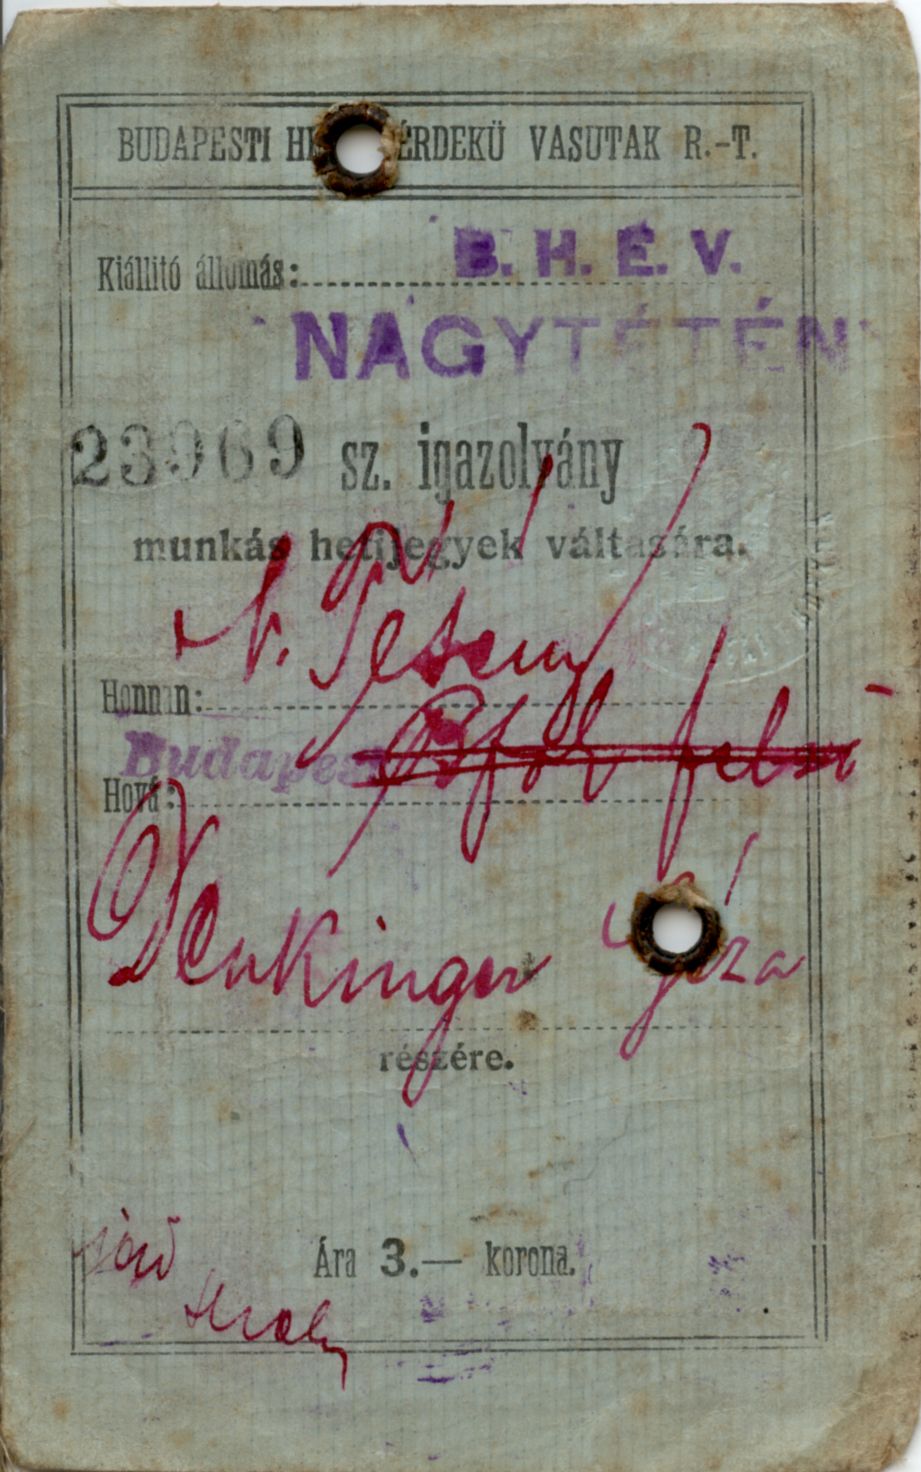 BUDAPESTI HE ÉRDEKÜ VASUTAK R.-T.
Kiállitó állomás: B. H. É. V.
NAGYTÉTÉNY
23969 sz. igazolvány
munkás hetijegyek váltására.
Honnan: N. Tétény
Budapest
Hová:
Denkinger Géza
részére.
Ára 3.— korona.